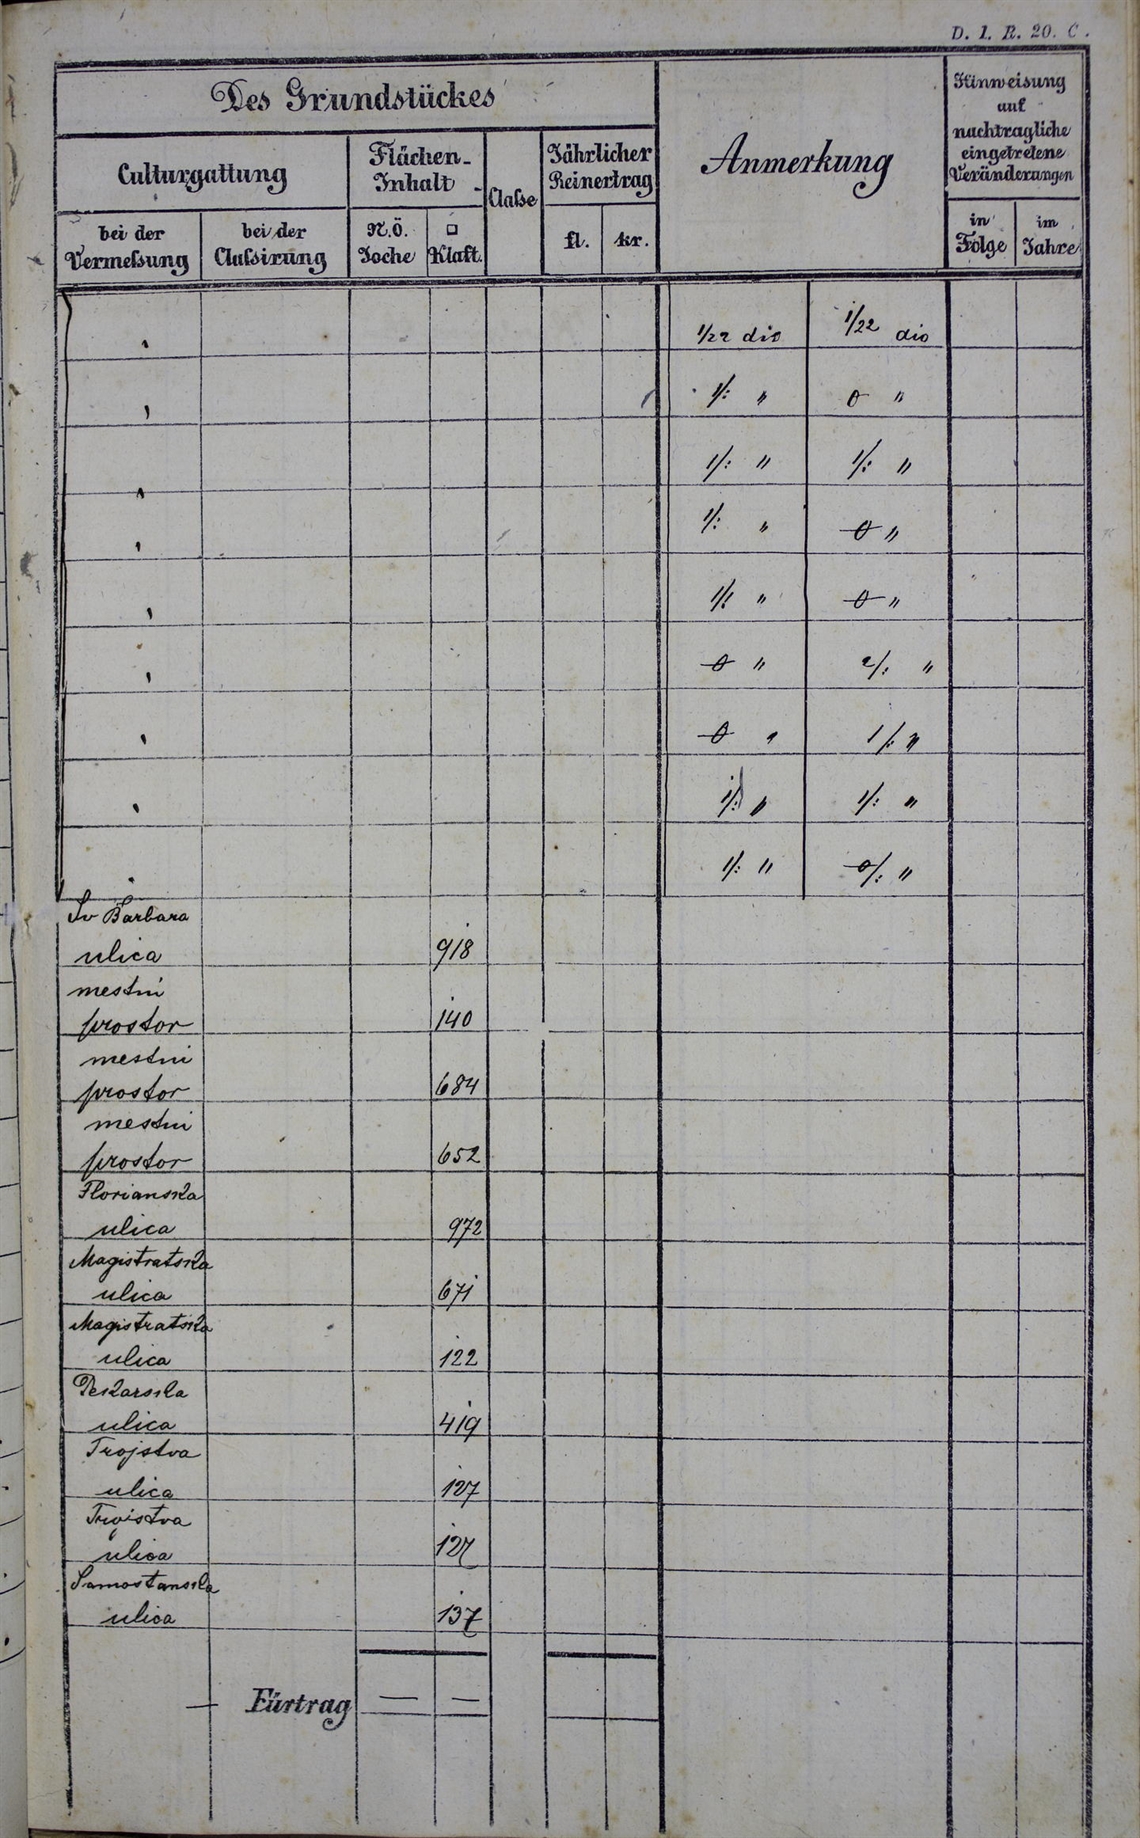 D. 1. R. 20. C.
Des Grundstückes
Anmerkung
Hinweisung
auf
nachtragliche
eingetretene
Veränderungen
Culturgattung
Flächen-
Inhalt
Classe
Jährlicher
Reinertrag
bei der
Vermessung
bei der
Classirung
N.Ö.
Joche
□
Klaft.
fl.
kr.
in
Folge
im
Jahre
1/22 dio 1/22 dio
1/: " 0 "
1/: " 1/: "
1/: " 0 "
1/: " 0 "
0 " 2/: "
0 " 1/: "
1/: " 1/: "
1/: " 0/: "
Sv Barbara
ulica 918
mestni
prostor 140
mestni
prostor 684
mestni
prostor 652
Florianska
ulica 972
Magistratska
ulica 671
Magistratska
ulica 122
Pekarska
ulica 419
Trojstva
ulica 127
Trojstva
ulica 127
Samostanska
ulica 137
— Fürtrag — —